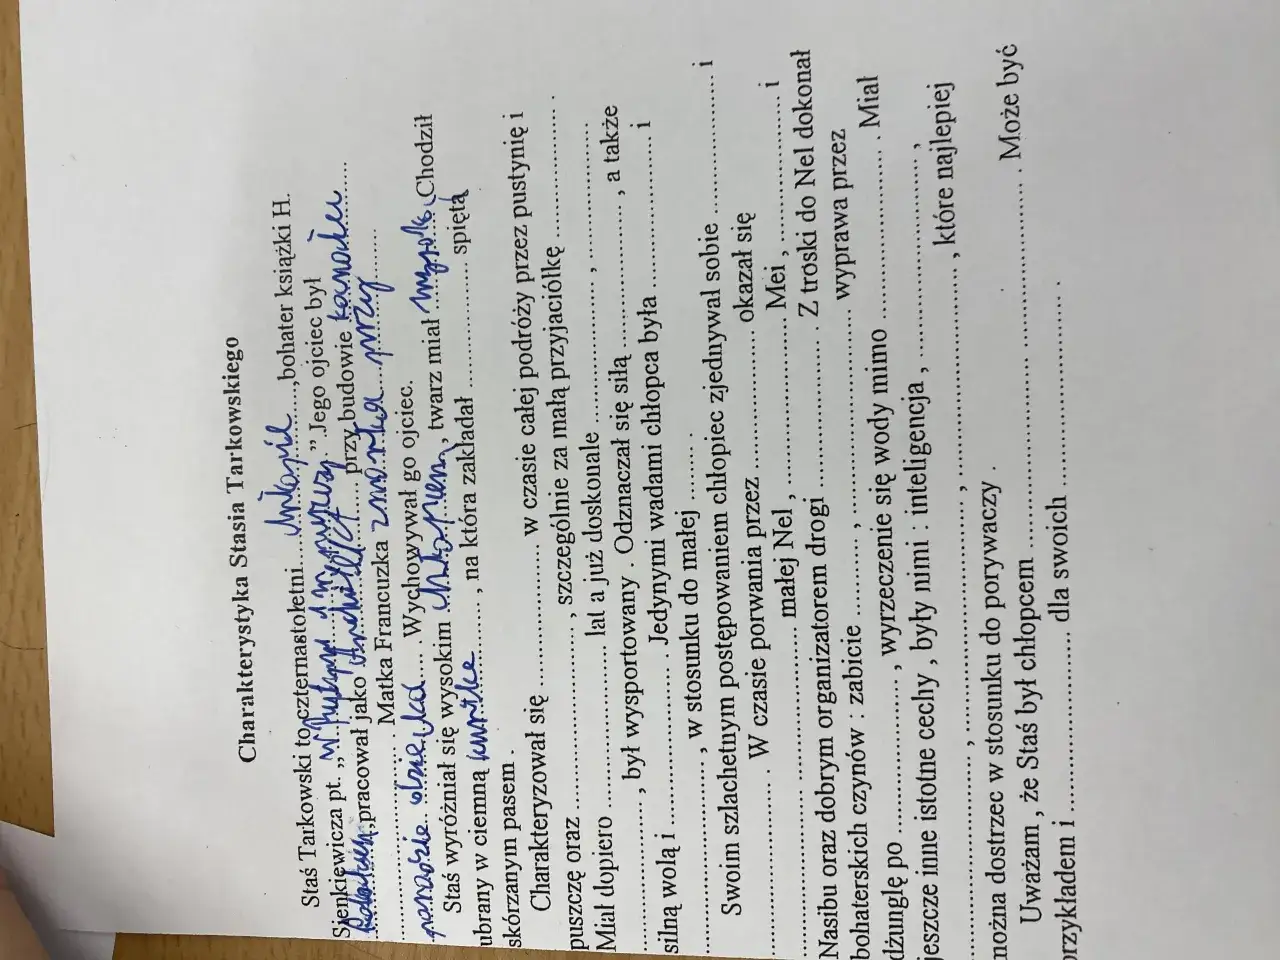 Charakterystyka Stasia Tarkowskiego
Staś Tarkowski to czternastoletni.................,bohater książki H.
Sienkiewicza pt. „ W i w puszczy ” Jego ojciec był
pracował jako ....... przy budowie kanału
............ Matka Francuzka zmarła przy
porodzie ....... Wychowywał go ojciec.
Staś wyróżniał się wysokim , twarz miał ....... Chodził
ubrany w ciemną kurtkę ........ , na która zakładał ................. spiętą
skórzanym pasem .
Charakteryzował się ......................... w czasie całej podróży przez pustynię i
puszczę oraz ............................. , szczególnie za małą przyjaciółkę ........................ .
Miał dopiero ............................ lat a już doskonale ........................... , ........................
.................... , był wysportowany . Odznaczał się siłą ........................ , a także
silną wolą i .......................... . Jedynymi wadami chłopca była .......................... i
.................................. , w stosunku do małej ........ .
Swoim szlachetnym postępowaniem chłopiec zjednywał sobie ...................... i
......................... . W czasie porwania przez...................... okazał się
.................................. małej Nel , .......................... Mei , ...................... i
Nasibu oraz dobrym organizatorem drogi ...................... . Z troski do Nel dokonał
bohaterskich czynów : zabicie .............. , .............................. wyprawa przez
dżunglę po ................. , wyrzeczenie się wody mimo ......................... . Miał
jeszcze inne istotne cechy , były nimi : inteligencja , ............................ ,
............................. , ............................. , ............................. , które najlepiej
można dostrzec w stosunku do porywaczy .
Uważam , że Staś był chłopcem .......................... .......................... . Może być
przykładem i .......................... dla swoich .............................. .